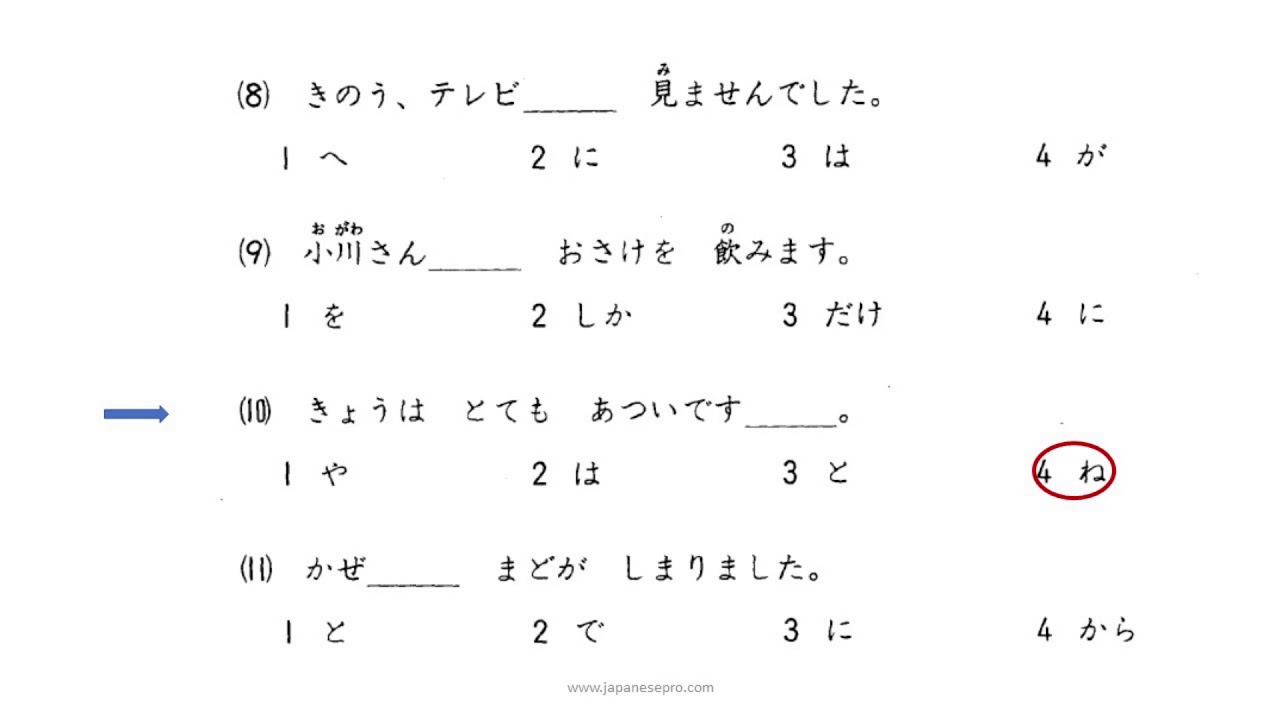 (8) きのう、テレビ______ 見ませんでした。
み
1 へ 2 に 3 は 4 が
(9) 小川さん______ おさけを 飲みます。
お がわ の
1 を 2 しか 3 だけ 4 に
(10) きょうは とても あついです______。
1 や 2 は 3 と 4 ね
(11) かぜ______ まどが しまりました。
1 と 2 で 3 に 4 から
www.japanesepro.com